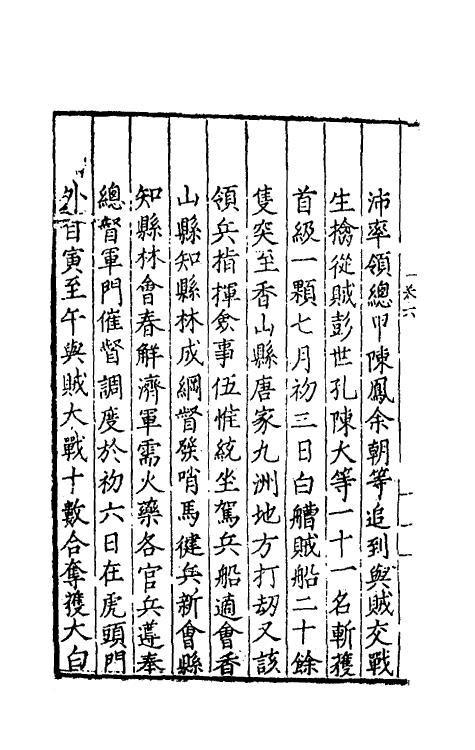 沛率領總甲陳鳳余朝等追到與賊交戰
生擒從賊彭世孔陳大等一十一名斬獲
首級一顆七月初三日白艚賊船二十餘
隻突至香山縣唐家九洲地方打刼又該
領兵指揮僉事伍惟統坐駕兵船適會香
山縣知縣林成綱督發哨馬健兵新會縣
知縣林會春解濟軍需火藥各官兵遵奉
總督軍門催督調度於初六日在虎頭門
外自寅至午與賊大戰十數合奪獲大白
卷六